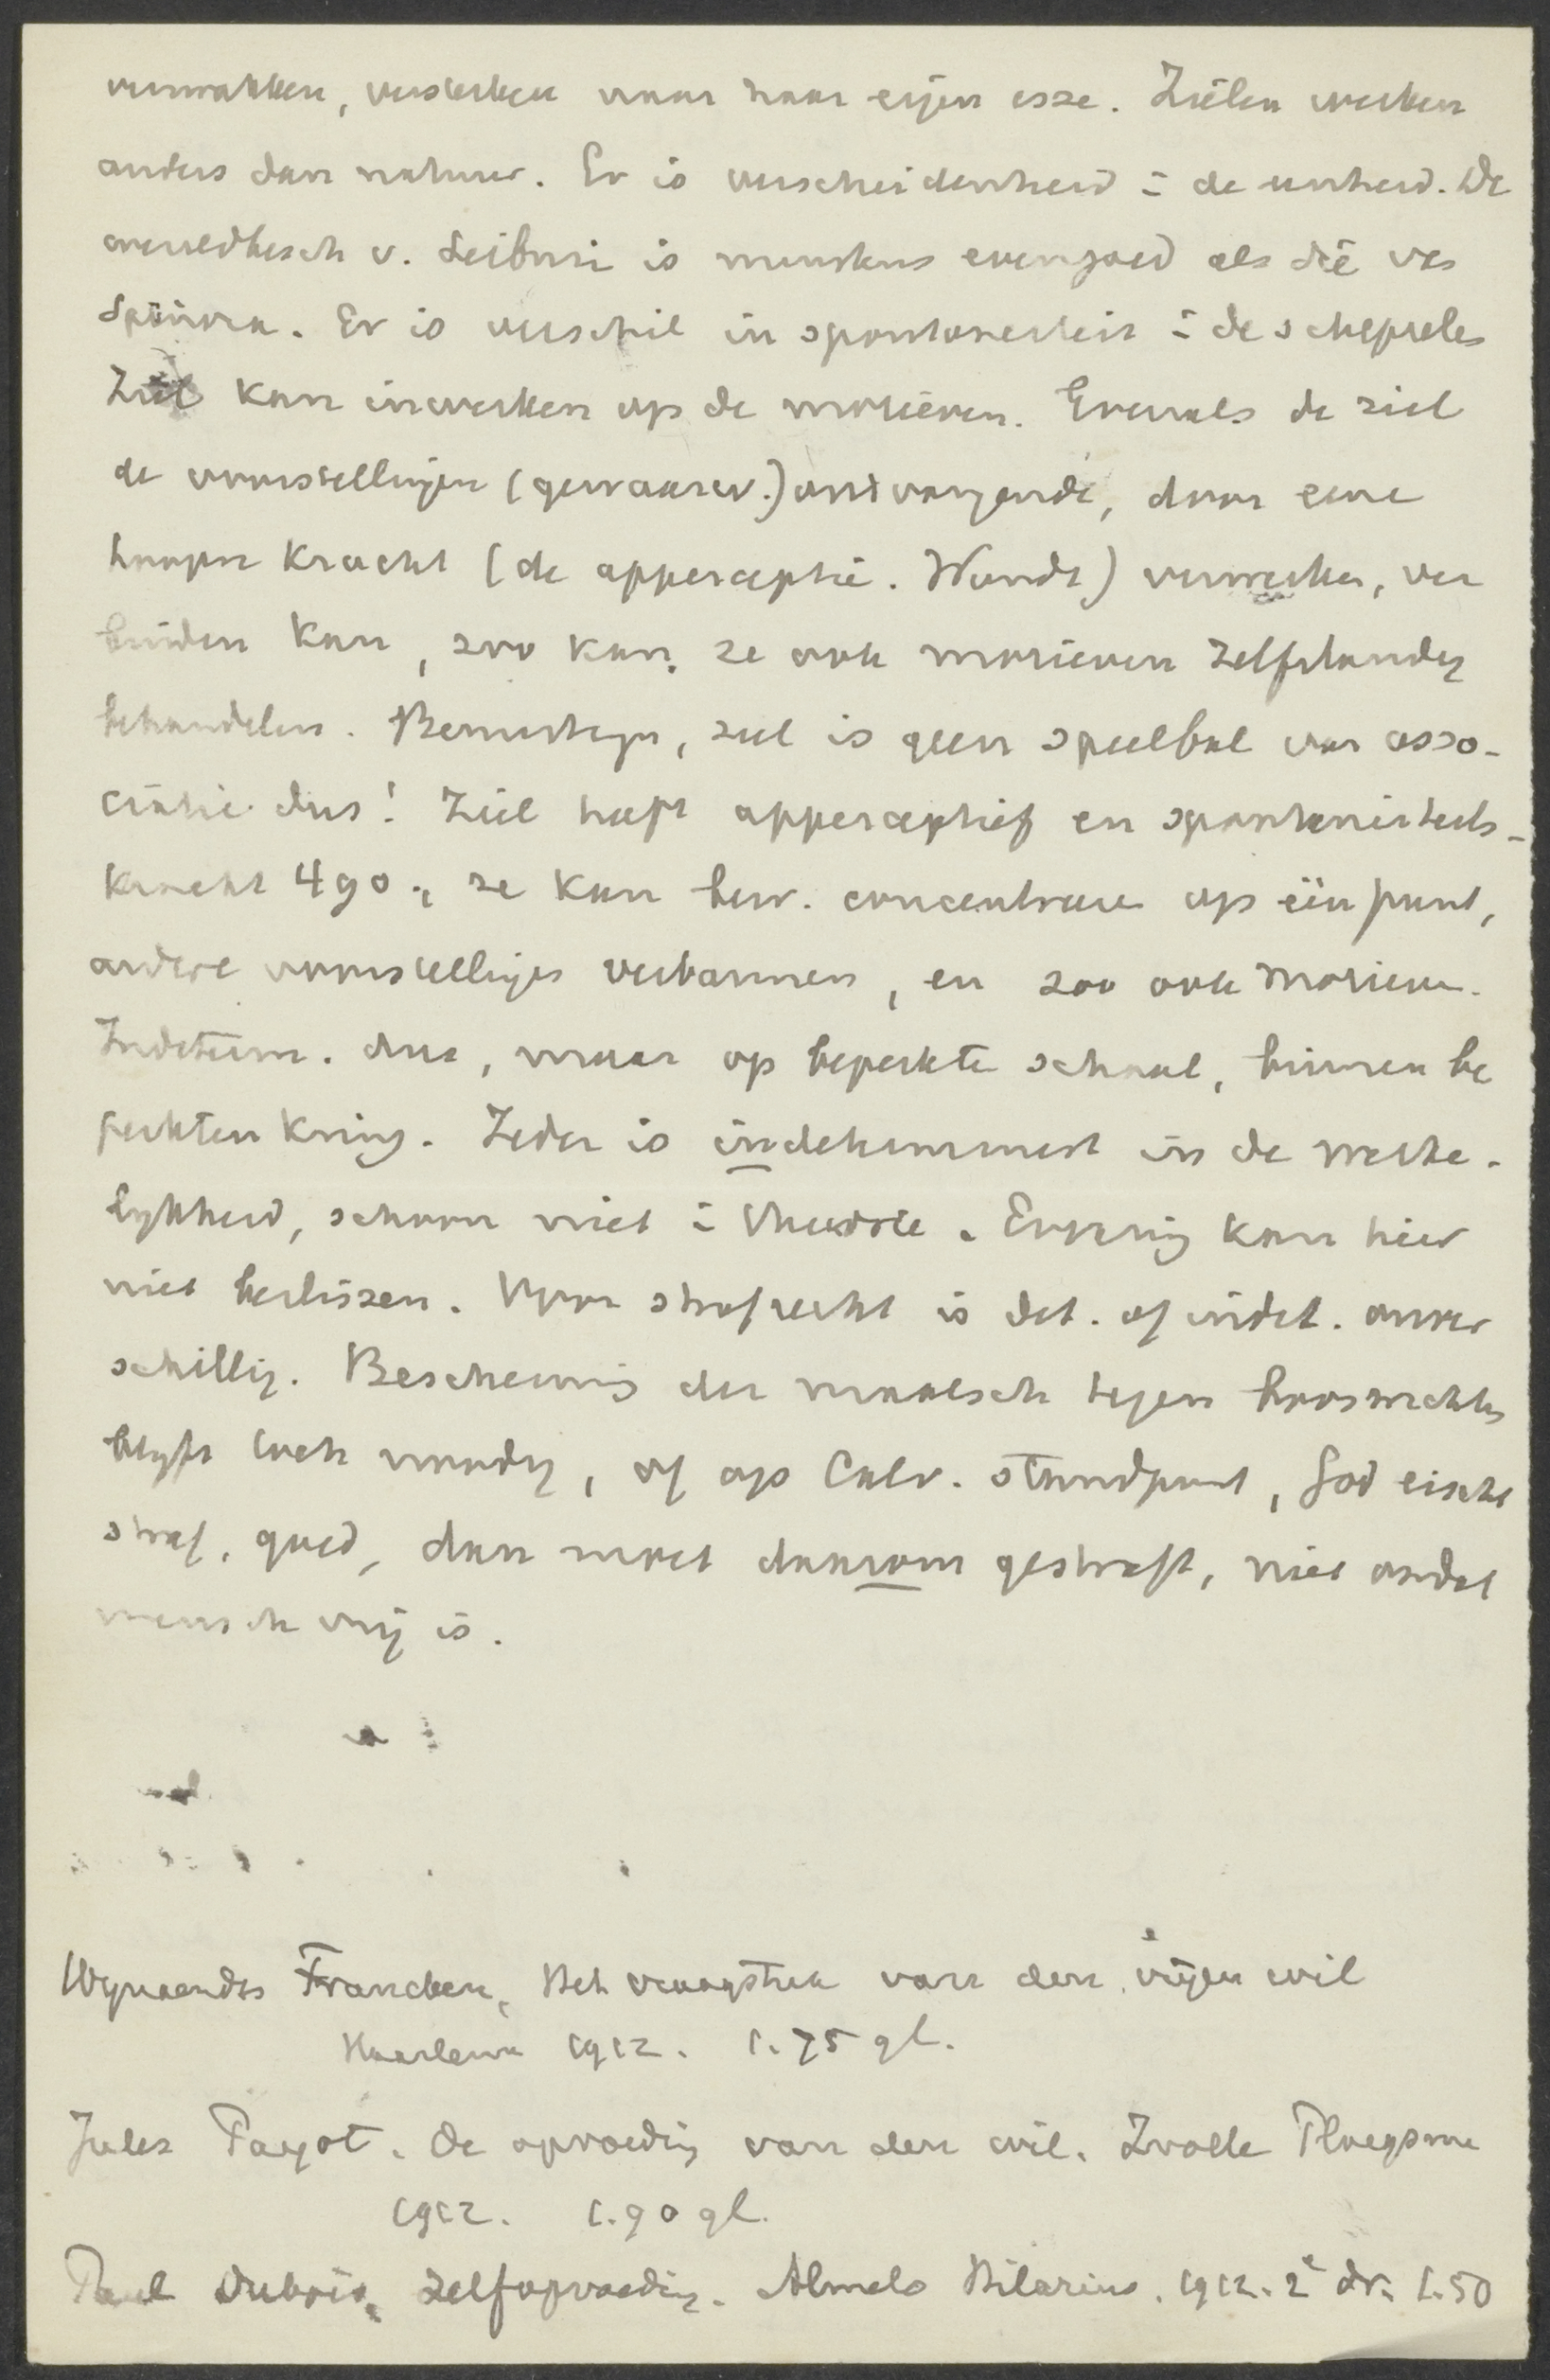 verzwakken, versterken naar haar eigen esse. Zielen werken
anders dan natuur. Er is verscheidenheid i de eenheid. De
wereldbesch v. Leibniz is monstreus evengoed als die van
Spinoza. Er is verschil in spontaneiteit i de schepselen
Ziel kan inwerken op de motieven. Evenals de ziel
de voorstellingen (gewaarw.) ontvangende, door eene
hoogere kracht (de apperceptie. Wundt) verwerken, ver
binden kan, zoo kan ze ook motieven zelfstandig
behandelen. Bewustzijn, ziel is geen speelbal van asso-
ciatie dus! Ziel heeft apperceptief en spontaniteits-
kracht 490., ze kan bew. concentreren op één punt,
andere voorstellingen verbannen, en zoo ook motieven.
Indeterm. dus, maar op beperkte schaal, binnen be
perkten kring. Ieder is indeterminist in de werke-
lykheid, schoon niet i theorie. Ervaring kan hier
niet beslissen. Voor strafrecht is det. of indet. onver
schillig. Bescherming der maatsch tegen booswichten
blyft toch noodig, of op Calv. standpunt, God eischt
straf, goed, dan moet daarom gestraft, niet omdat
mensch vrij is.
Wynaendts Francken, Het vraagstuk van den vrijen wil
Haarlem 1912. 1.75 gl.
Jules Payot. De opvoeding van den wil. Zwolle Ploegsma
1912. 1.90 gl.
Paul Dubois, Zelfopvoeding. Almelo Hilarius. 1912. 2e dr. 1.50